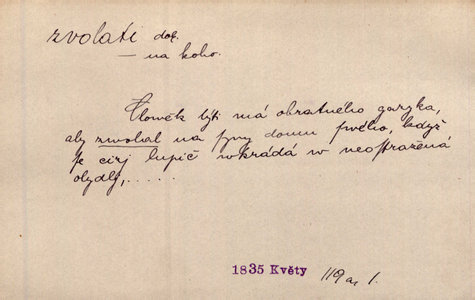 zvolati dok.
— na koho.
Člowěk býti má obratného gazyka,
aby zwolal na syny domu swého, když
se cizj lupič wkrádá w neostražená
obydlj,.....
1835 Květy 119 a 1.